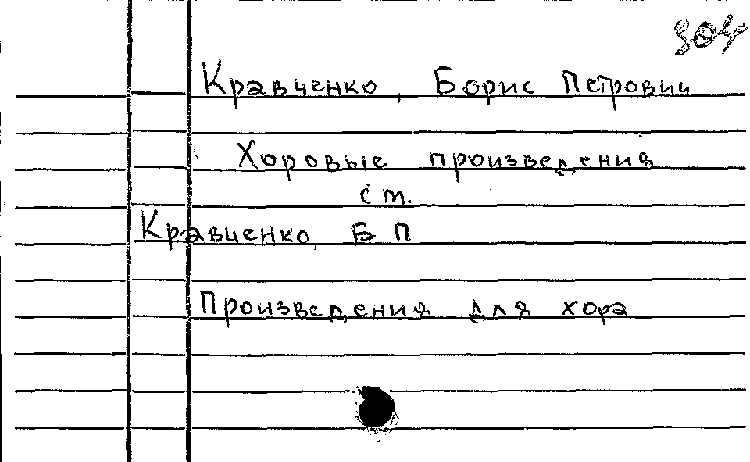 Кравченко, Борис Петрович
Хоровые произведения
см.
Кравченко, Б П
Произведения для хора